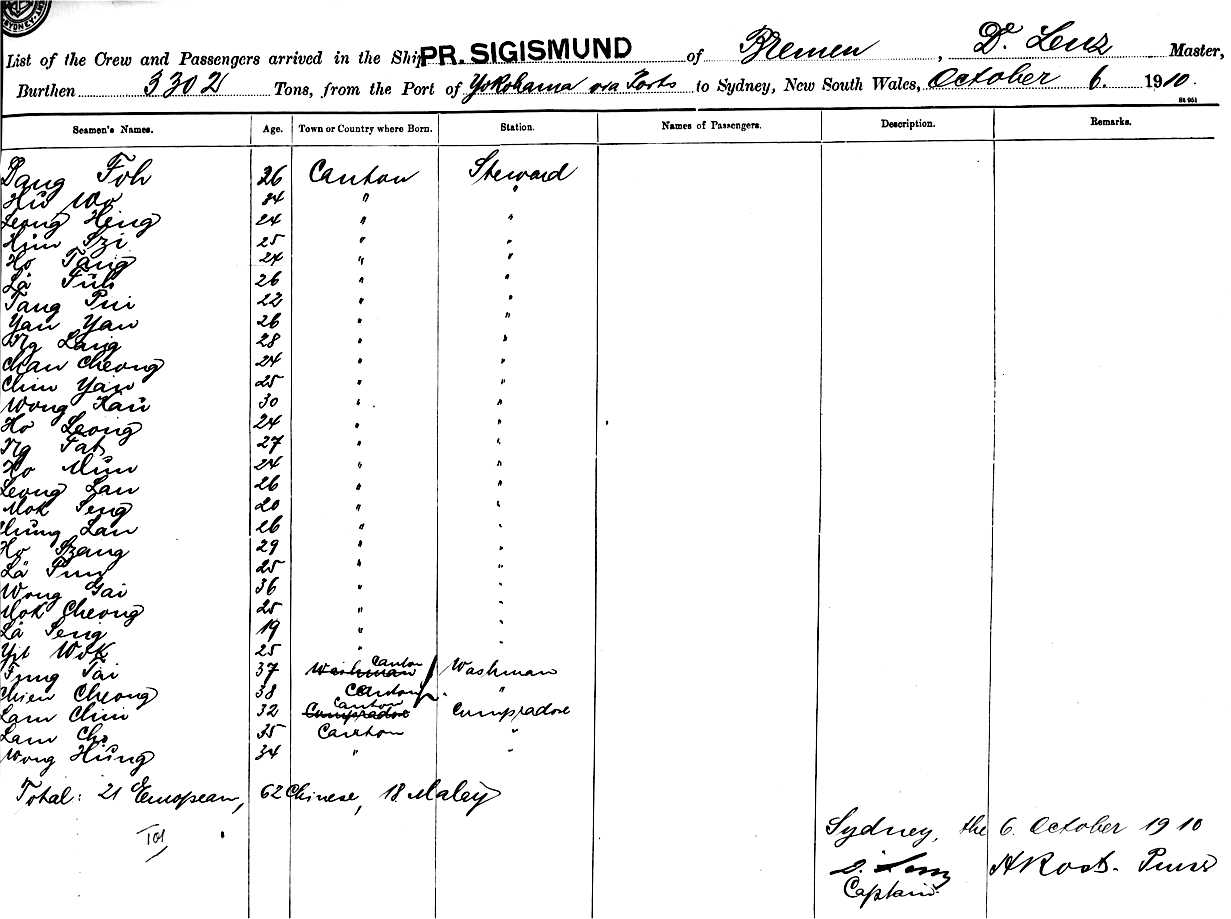 SYDNEY
List of the Crew and Passengers arrived in the Ship PR. SIGISMUND of Bremen, D. Lenz Master,
Burthen 3302 Tons, from the Port of Yokohama via Ports to Sydney, New South Wales, October 6. 1910.
St 951
Seamen's Names. Age. Town or Country where Born. Station. Names of Passengers. Description. Remarks.
Dang Foh 26 Canton Steward
Hü Wo 24 " "
Leong Heng 24 " "
Szi 25 " "
Ho Tang 24 " "
Lä Füh 26 " "
Tang Pui 22 " "
Yan Yan 26 " "
Ng Lang 28 " "
Chan Cheong 24 " "
Chin Yan 25 " "
Wong Kau 30 " "
Ho Leong 24 " "
Ng Fat 27 " "
Ho Mün 24 " "
Leong Lan 26 " "
Mok Seng 20 " "
Chüng Lan 26 " "
Ho Szang 29 " "
Lä Pun 25 " "
Wong Gai 36 " "
Mok Cheong 25 " "
Lä Seng 19 " "
Wok 25 " "
Fung Tai 37 Washman Canton Washman
Chien Cheong 38 Canton "
Lam Chin 32 Compradore Canton Compradore
Lam Cho 35 Canton "
Wong Hüng 34 " "
Total: 21 European, 62 Chinese, 18 Maley
101
Sydney, the 6. October 1910
D. Lenz A Rost. Purser
Captain.